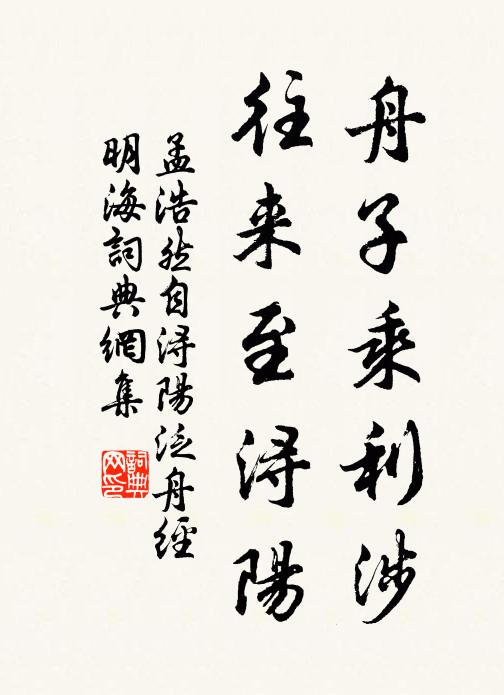 舟子乘利涉
往来至浔陽
孟浩然自浔陽泛舟經
明海詞典網集
詞典网印